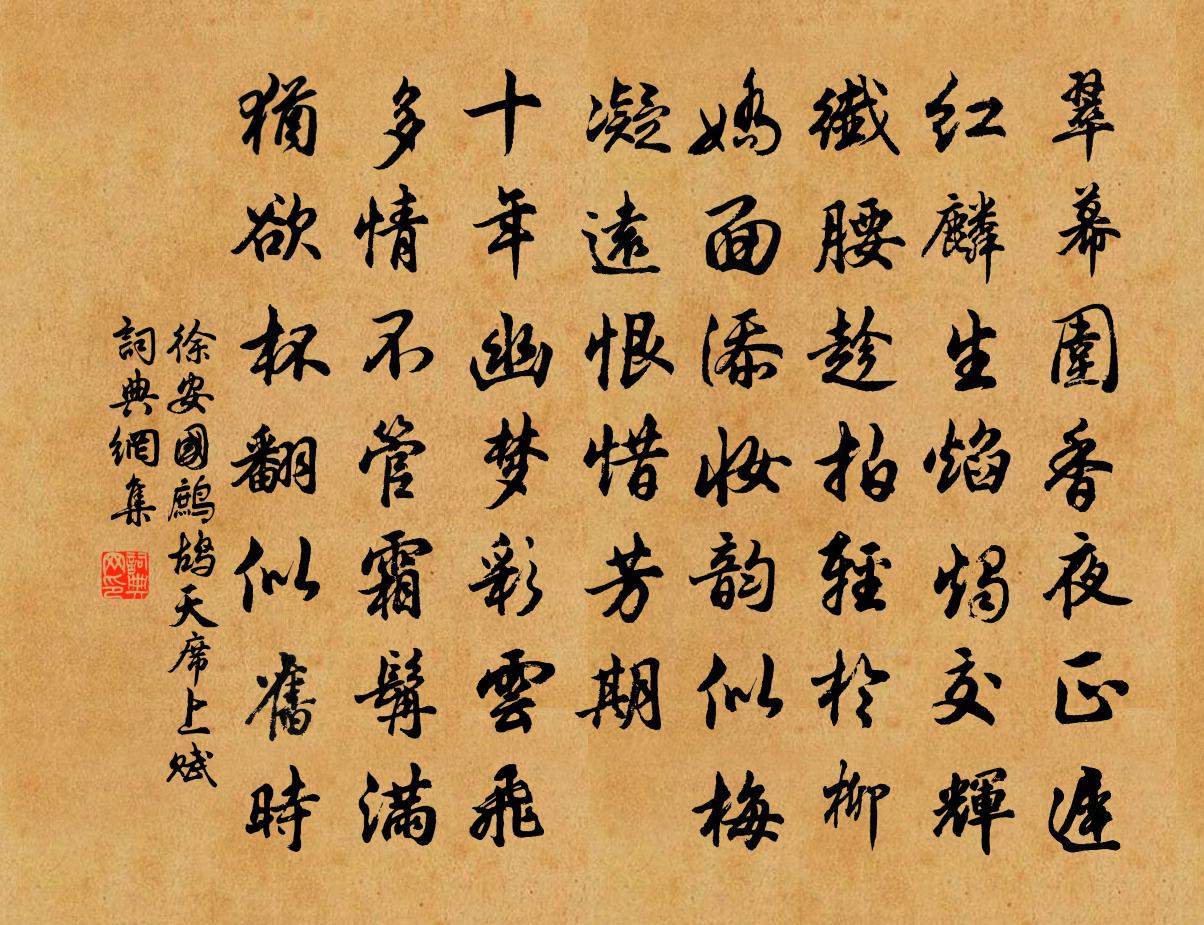 翠幕圍香夜正遲
紅麟生焰燭交輝
纖腰趁拍輕於柳
嬌面添妝韵似梅
凝遠恨惜芳期
十年幽梦彩雲飛
多情不管霜鬢滿
猶欲杯翻似舊時
徐安國鷓鴣天席上賦
詞典網集
詞典网印